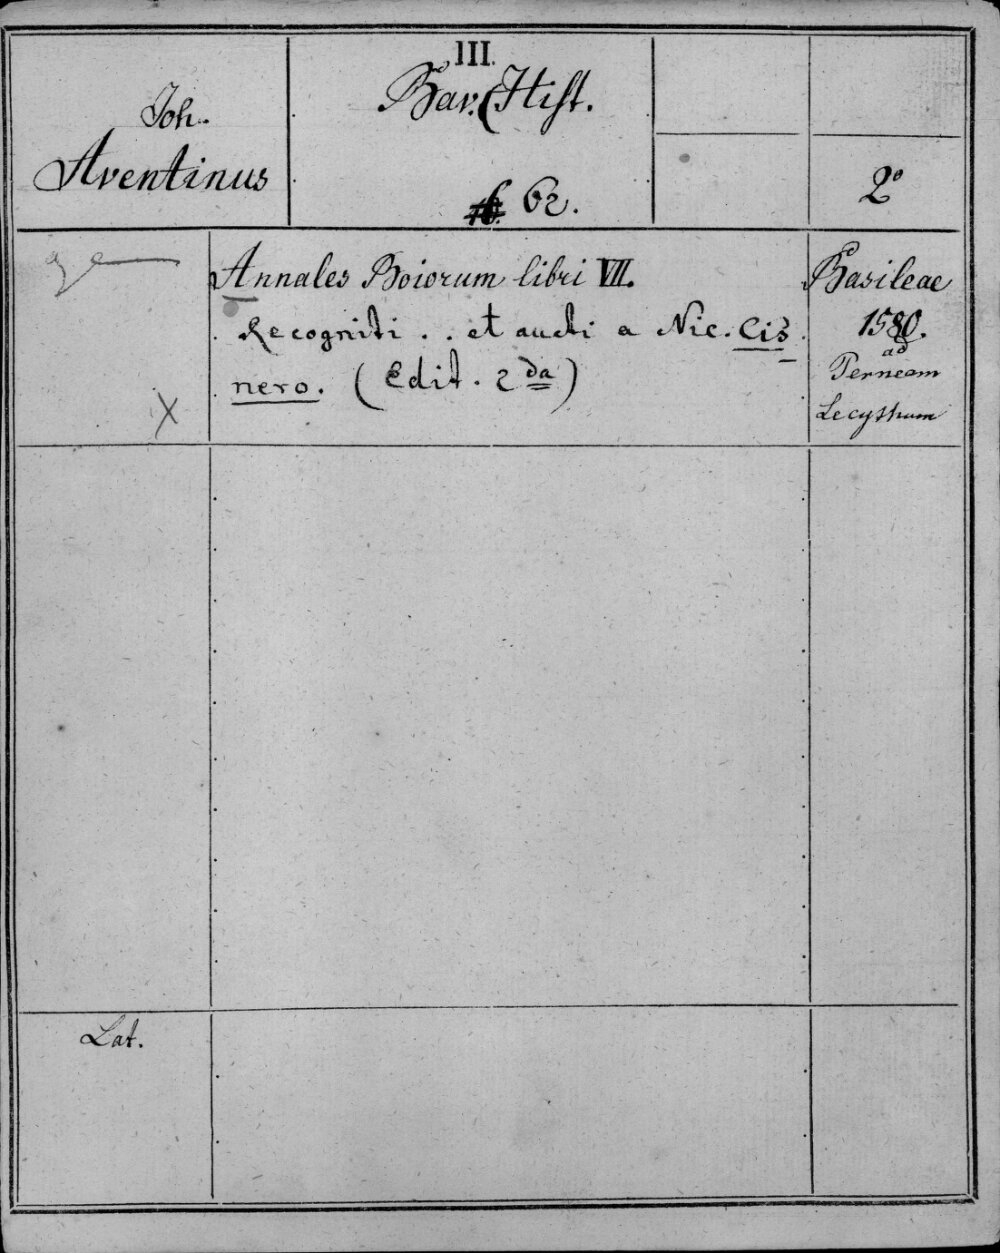 III.
Bav. (Hist.
Joh.
Aventinus
62.
2°
Annales Boiorum libri VII.
Recogniti . . et aucti a Nic. Cis=
nero. (Edit. 2da)
Basileae
1580.
ad
Perneam
Lecythum
X
Lat.